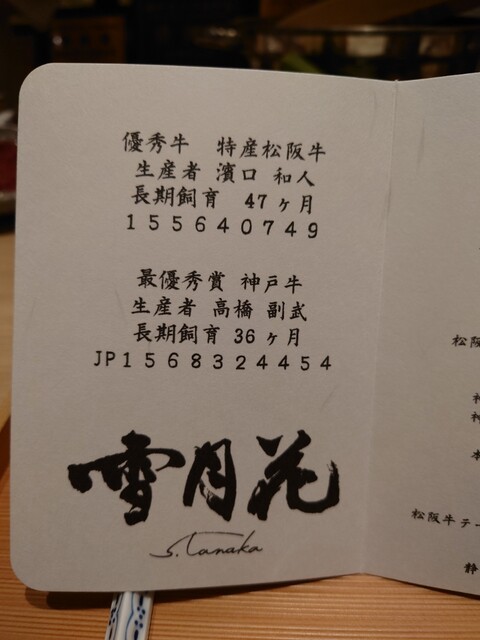 優秀牛 特産松阪牛
生産者 濱口 和人
長期飼育 47ヶ月
155640749
最優秀賞 神戸牛
生産者 高橋 副武
長期飼育 36ヶ月
JP1568324454
雪月花
S.Tanaka
松阪
神
神
本
松阪牛テー
静